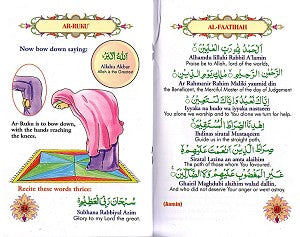 AR-RUKU'
Now bow down saying:
اَللّٰهُ اَكْبَرُ
Allahu Akbar
Allah is the Greatest
Ar-Ruku is to bow down,
with the hands reaching
the knees.
Recite these words thrice:
سُبْحَانَ رَبِّيَ الْعَظِيْمِ
Subhana Rabbiyal Azim
Glory to my Lord the great.
AL-FAATIHAH
اَلْحَمْدُ لِلّٰهِ رَبِّ الْعٰلَمِيْنَ
Alhamdu lillahi Rabbil A'lamin
Praise be to Allah, lord of the worlds,
الرَّحْمٰنِ الرَّحِيْمِ مٰلِكِ يَوْمِ الدِّيْنِ
Ar Rahmanir Rahim Maliki yaumid din
the Beneficent, the Merciful Master of the day of Judgement
اِيَّاكَ نَعْبُدُ وَاِيَّاكَ نَسْتَعِيْنُ
Iyyaka na budu wa iyyaka nastaeen
You alone we worship and You alone we turn to for help.
اِهْدِنَا الصِّرَاطَ الْمُسْتَقِيْمَ
Ihdinas siratal Mustaqeem
Guide us in the straight path.
صِرَاطَ الَّذِيْنَ اَنْعَمْتَ عَلَيْهِمْ
Siratal Lazina an amta alaihim
The path of those whom You favoured.
غَيْرِ الْمَغْضُوْبِ عَلَيْهِمْ وَلَا الضَّآلِّيْنَ
Ghairil Maghdubi alaihim walad dallin.
And who did not deserve Your anger or went astray.
(Aamin)